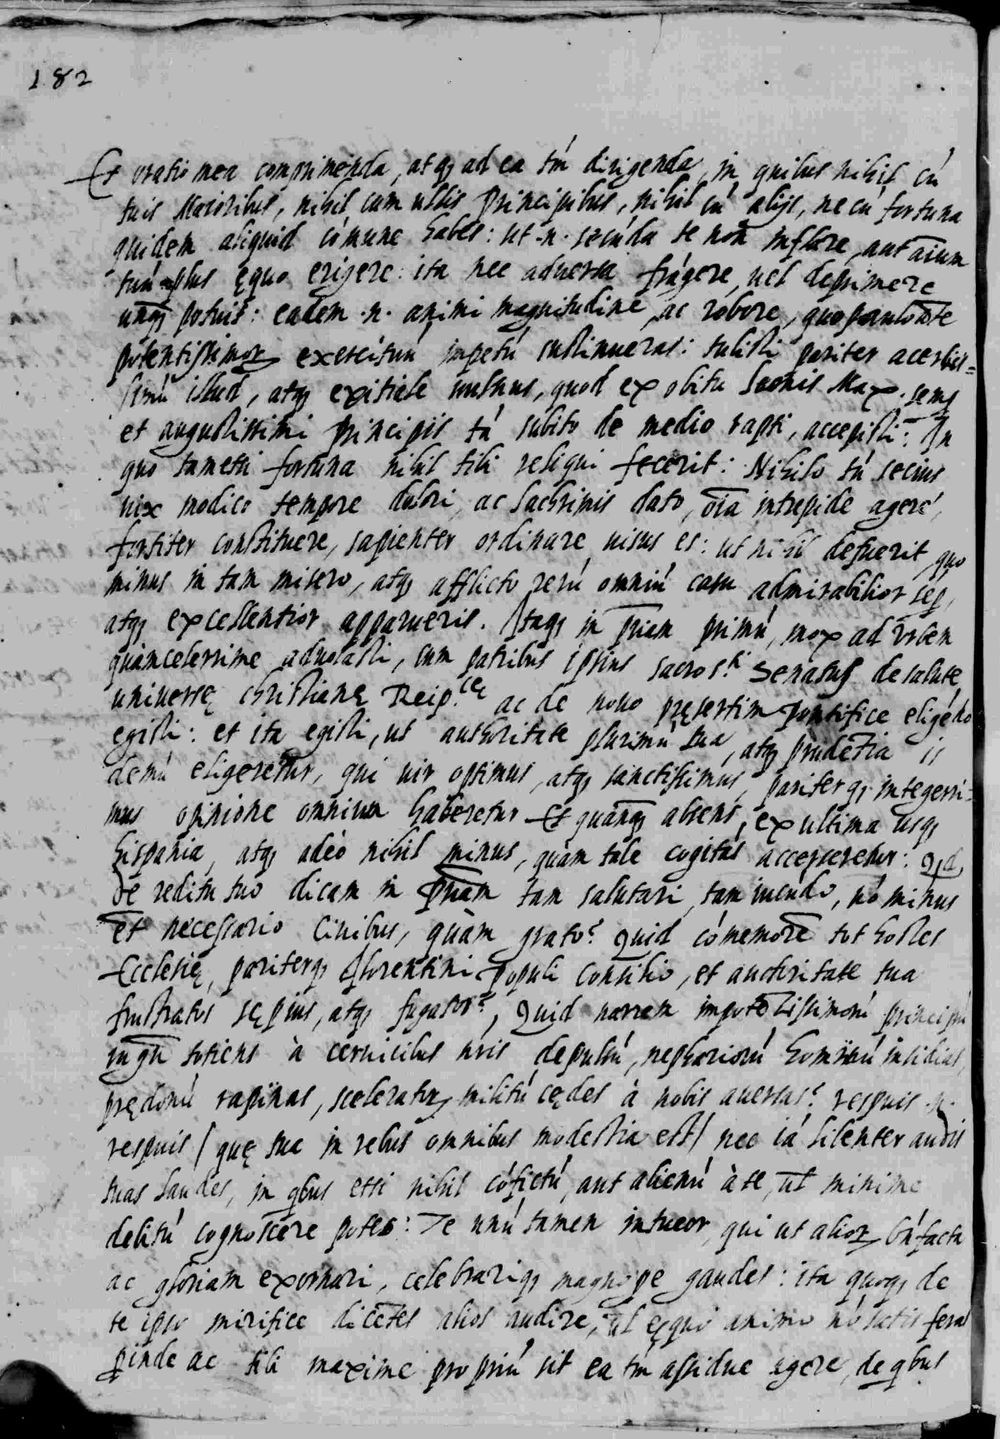 182
Et oratio mea comprimenda, atq3 ad ea tm̃ dirigenda, in quibus nihil cũ
tuis Maioribus, nihil cum ullis Principibus, nihil cũ alijs, ne cũ fortuna
quidem aliquid cómune habes: ut .n. secũda te non inflare, aut aĩum
tuũ plus ęquo erigere: ita nec aduersa frãgere, uel deprimere
unq3 potuit: eadem .n. animi magnitudine, ac robore, quo paulo ãte
potentissimoꝝ exercituũ impetũ sustinueras: tulisti pariter acerbis=
simũ illud, atq3 exitiale uulnus, quod ex obitu Leonis Max. semp
et augustissimi Principis tã subito de medio rapti, accepisti: In
quo tametsi fortuna nihil tibi reliqui fecerit: Nihilo tñ secius
uix modico tempore dolori, ac lachrimis dato, oĩa intrepide agere,
fortiter constituere, sapienter ordinare uisus es: ut nihil defuerit, quo
minus in tam misero, atq3 afflicto rerũ omniũ casu admirabilior sep,
atq3 excellentior apparueris. Itaq3 in p̃riam primũ, mox ad Vrben
quàm celerrime aduolasti, cum patribus ipsius sacros.ti Senatus de salute
uniuersę christianę Reip.cę ac de nouo pręsertim Pontifice eligẽdo
egisti: et ita egisti, ut authoritate plurimũ tua, atq3 prudẽtia is
demũ eligeretur, qui uir optimus, atq3 sanctissimus, pariterq3 integerri=
mus opinione omnium haberetur Et quanq3 absens, ex ultima usq3
hispania, atq3 adeò nihil minus, quàm tale cogitãs accerseretur: Qd
de reditu tuo dicam in p̃riam tam salutari, tam iucũdo, nõ minus
et necessario Ciuibus, quàm grato? Quid cómemorẽ tot hostes
Ecclesię, pariterq3 Florentini Populi consilio, et auctoritate tua
frustratos sępius, atq3 fugatos?, Quid narrem impotẽtissimorũ principũ
iugũ toties à ceruicibus nr̃is depulsũ, nephariorũ hominũ insidias,
prędonũ rapinas, sceleratoꝝ militũ cędes à nobis auersas? respuis .n.
respuis (quę tua in rebus omnibus modestia est) nec iã libenter audis
tuas laudes, in qbus etsi nihil cófictũ, aut alienũ à te, ut minime
delitũ cognoscere potes: Te unũ tamen intueor, qui ut alioꝝ bñfacta
ac gloriam exornari, celebrariq3 magnope gaudes: ita quoq3 de
te ipso mirifice dicẽtes alios audire, ut ęquo animo nõ satis feras
pinde ac tibi maxime propriũ sit ea tm̃ assidue agere, de qbus